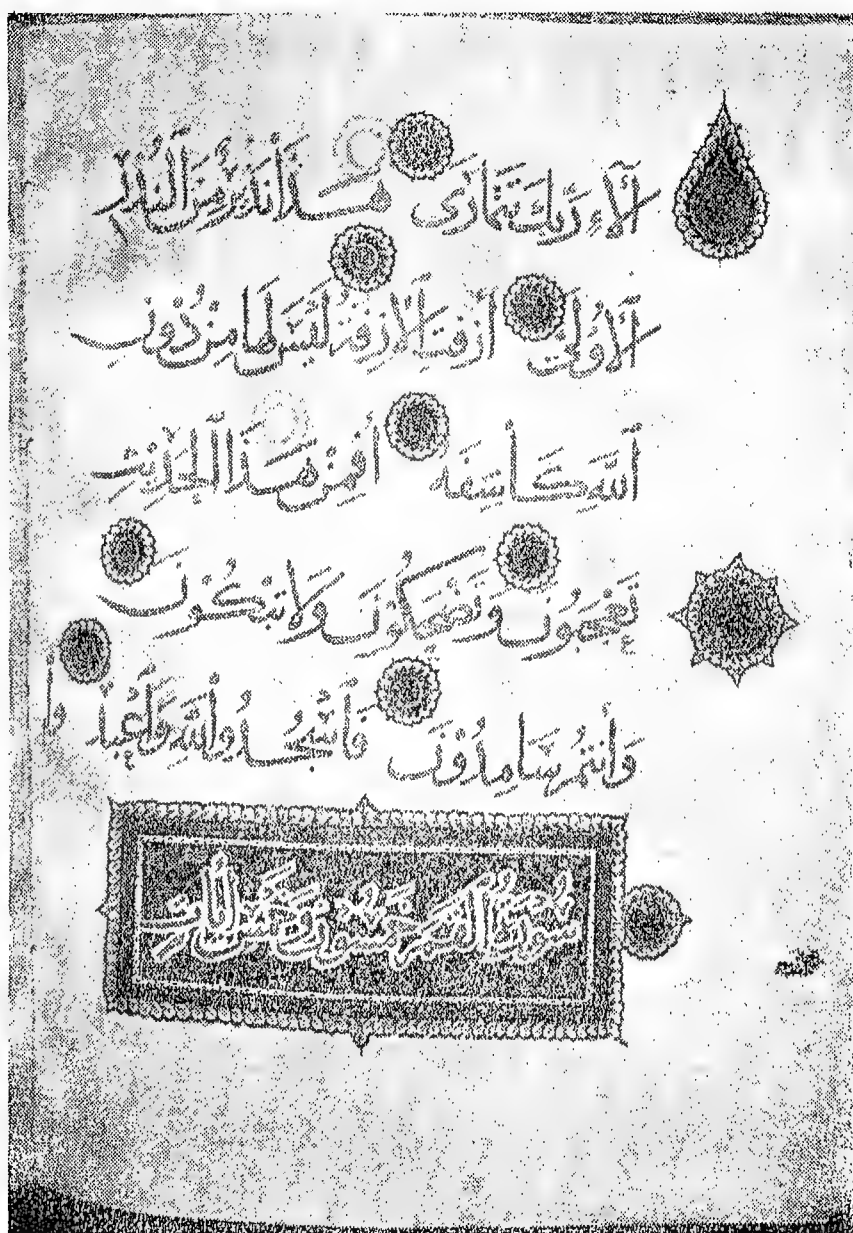 آلَاءِ رَبِّكَ تَتَمَارَى هَٰذَا نَذِيرٌ مِنَ ٱلنُّذُرِ
ٱلْأُولَىٰ أَزِفَتِ ٱلْآزِفَةُ لَيْسَ لَهَا مِنْ دُونِ
ٱللَّهِ كَاشِفَةٌ أَفَمِنْ هَٰذَا ٱلْحَدِيثِ
تَعْجَبُونَ وَتَضْحَكُونَ وَلَا تَبْكُونَ
وَأَنْتُمْ سَامِدُونَ فَٱسْجُدُوا لِلَّهِ وَٱعْبُدُوا
سورة القمر خمسون وخمس آيات